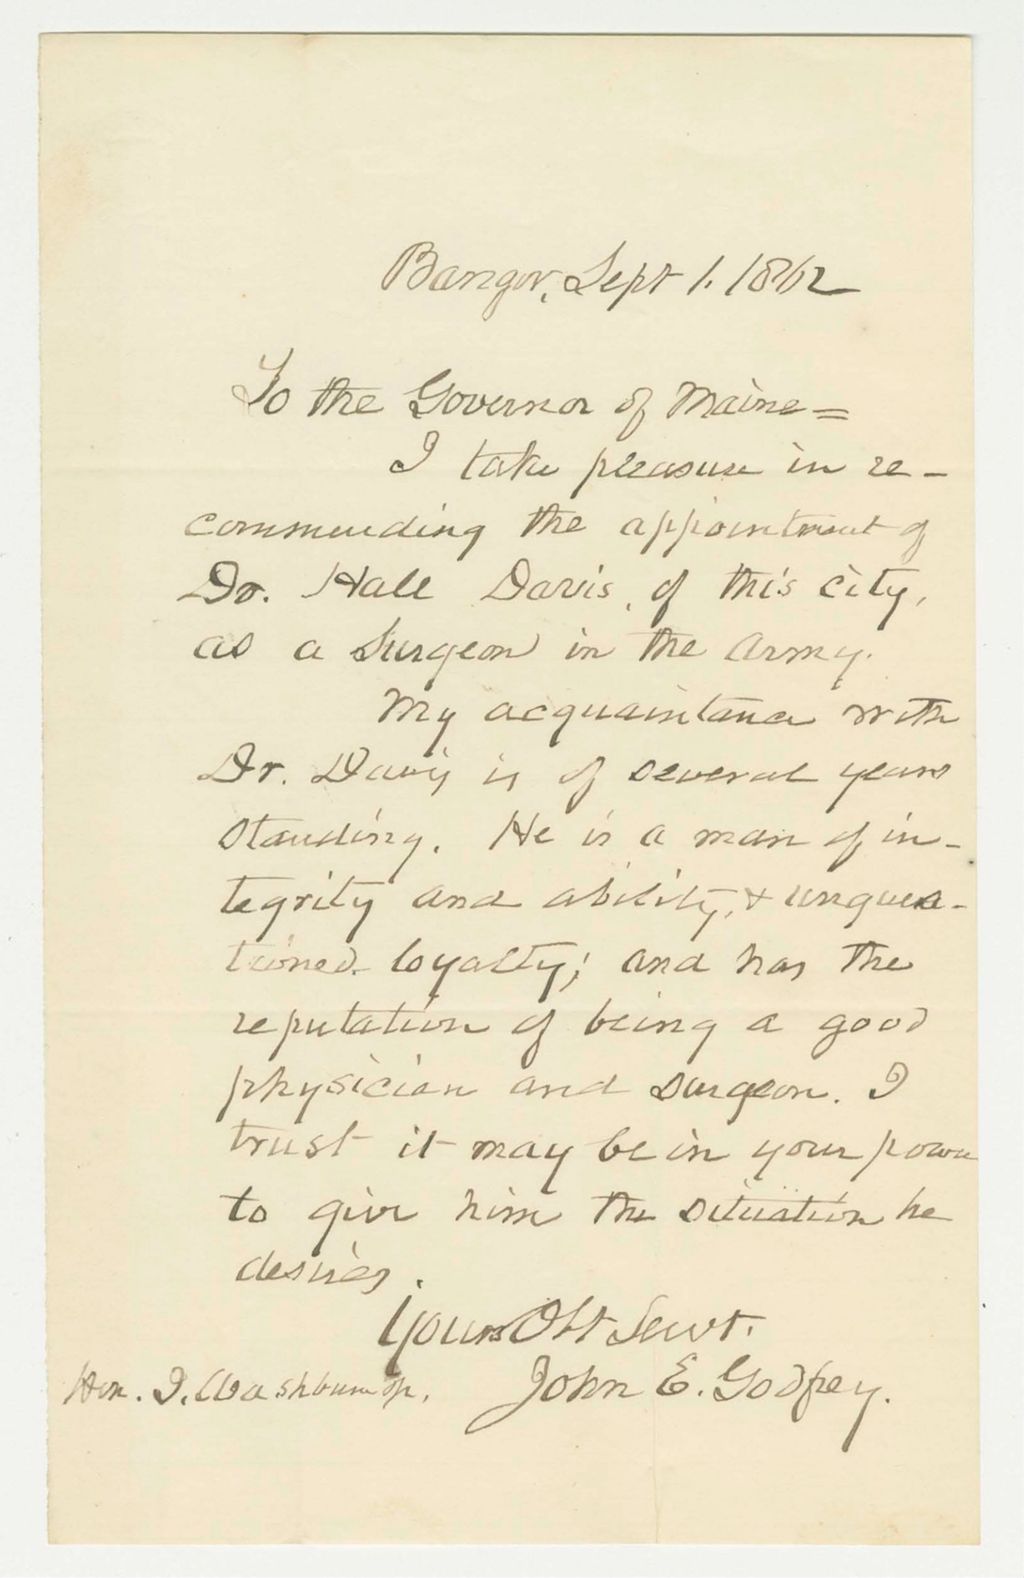 Bangor, Sept 1. 1862
To the Governor of Maine =
I take pleasure in re-
commending the appointment of
Dr. Hall Davis, of this city,
as a Surgeon in the Army.
My acquaintance with
Dr. Davis is of several years
standing. He is a man of in-
tegrity and ability, & unques-
tioned loyalty; and has the
reputation of being a good
physician and surgeon. I
trust it may be in your power
to give him the situation he
desires.
Your Obt Servt.
John E. Godfrey.
Hon. I. Washburn Jr.